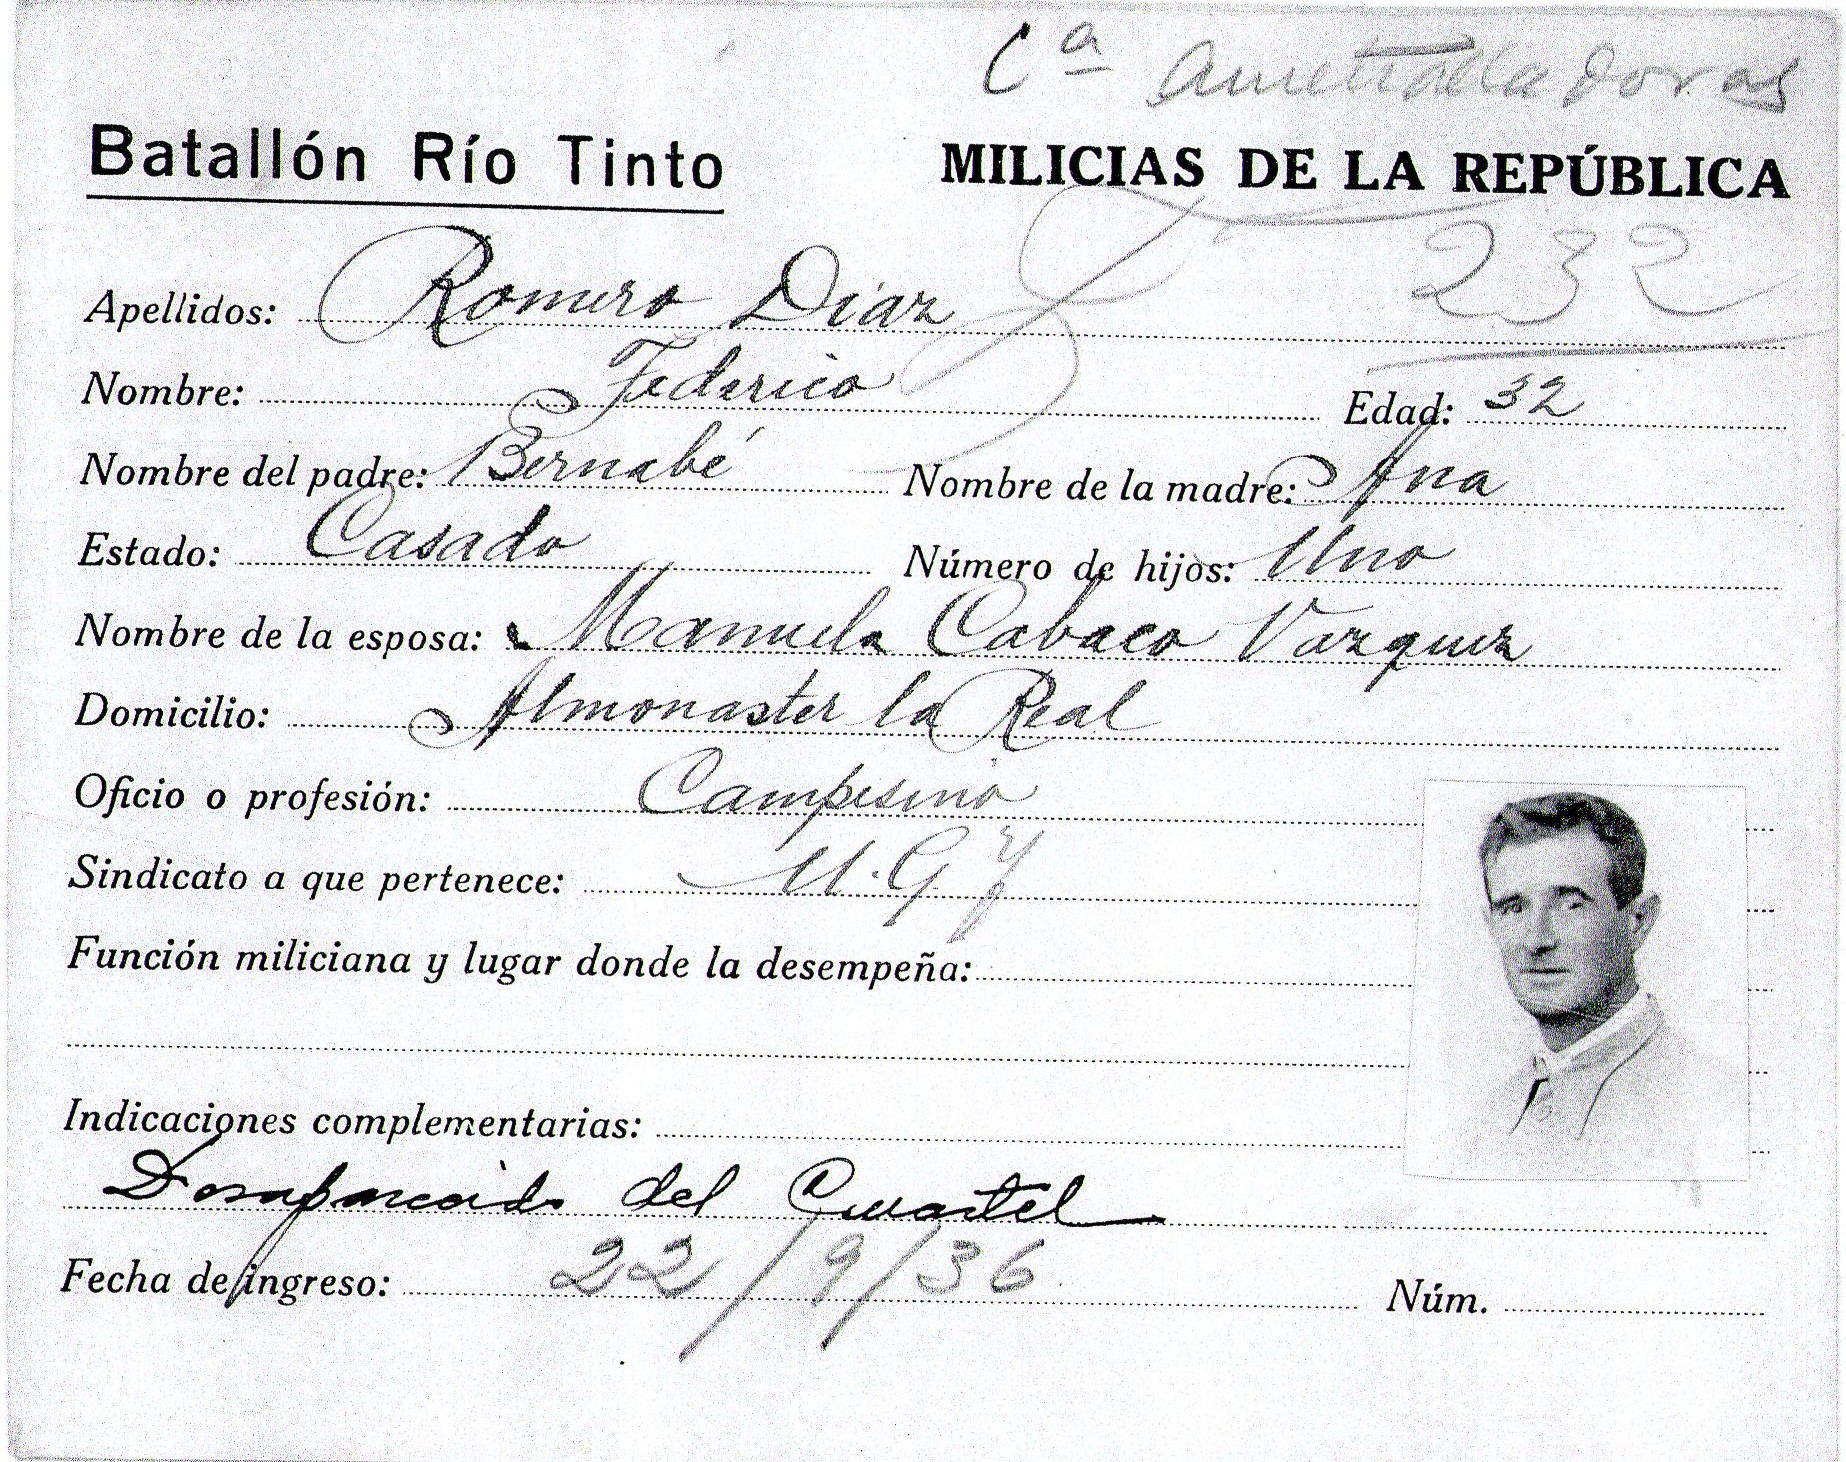 Cª Ametralladoras
Batallón Río Tinto
MILICIAS DE LA REPÚBLICA
232
Apellidos: Romero Diaz
Nombre: Federico Edad: 32
Nombre del padre: Bernabé Nombre de la madre: Ana
Estado: Casado Número de hijos: Uno
Nombre de la esposa: Manuela Cabaco Vazquez
Domicilio: Almonaster la Real
Oficio o profesión: Campesino
Sindicato a que pertenece: U.G.T
Función miliciana y lugar donde la desempeña:
Indicaciones complementarias:
Desaparecido del Cuartel
Fecha de ingreso: 22/9/36 Núm.